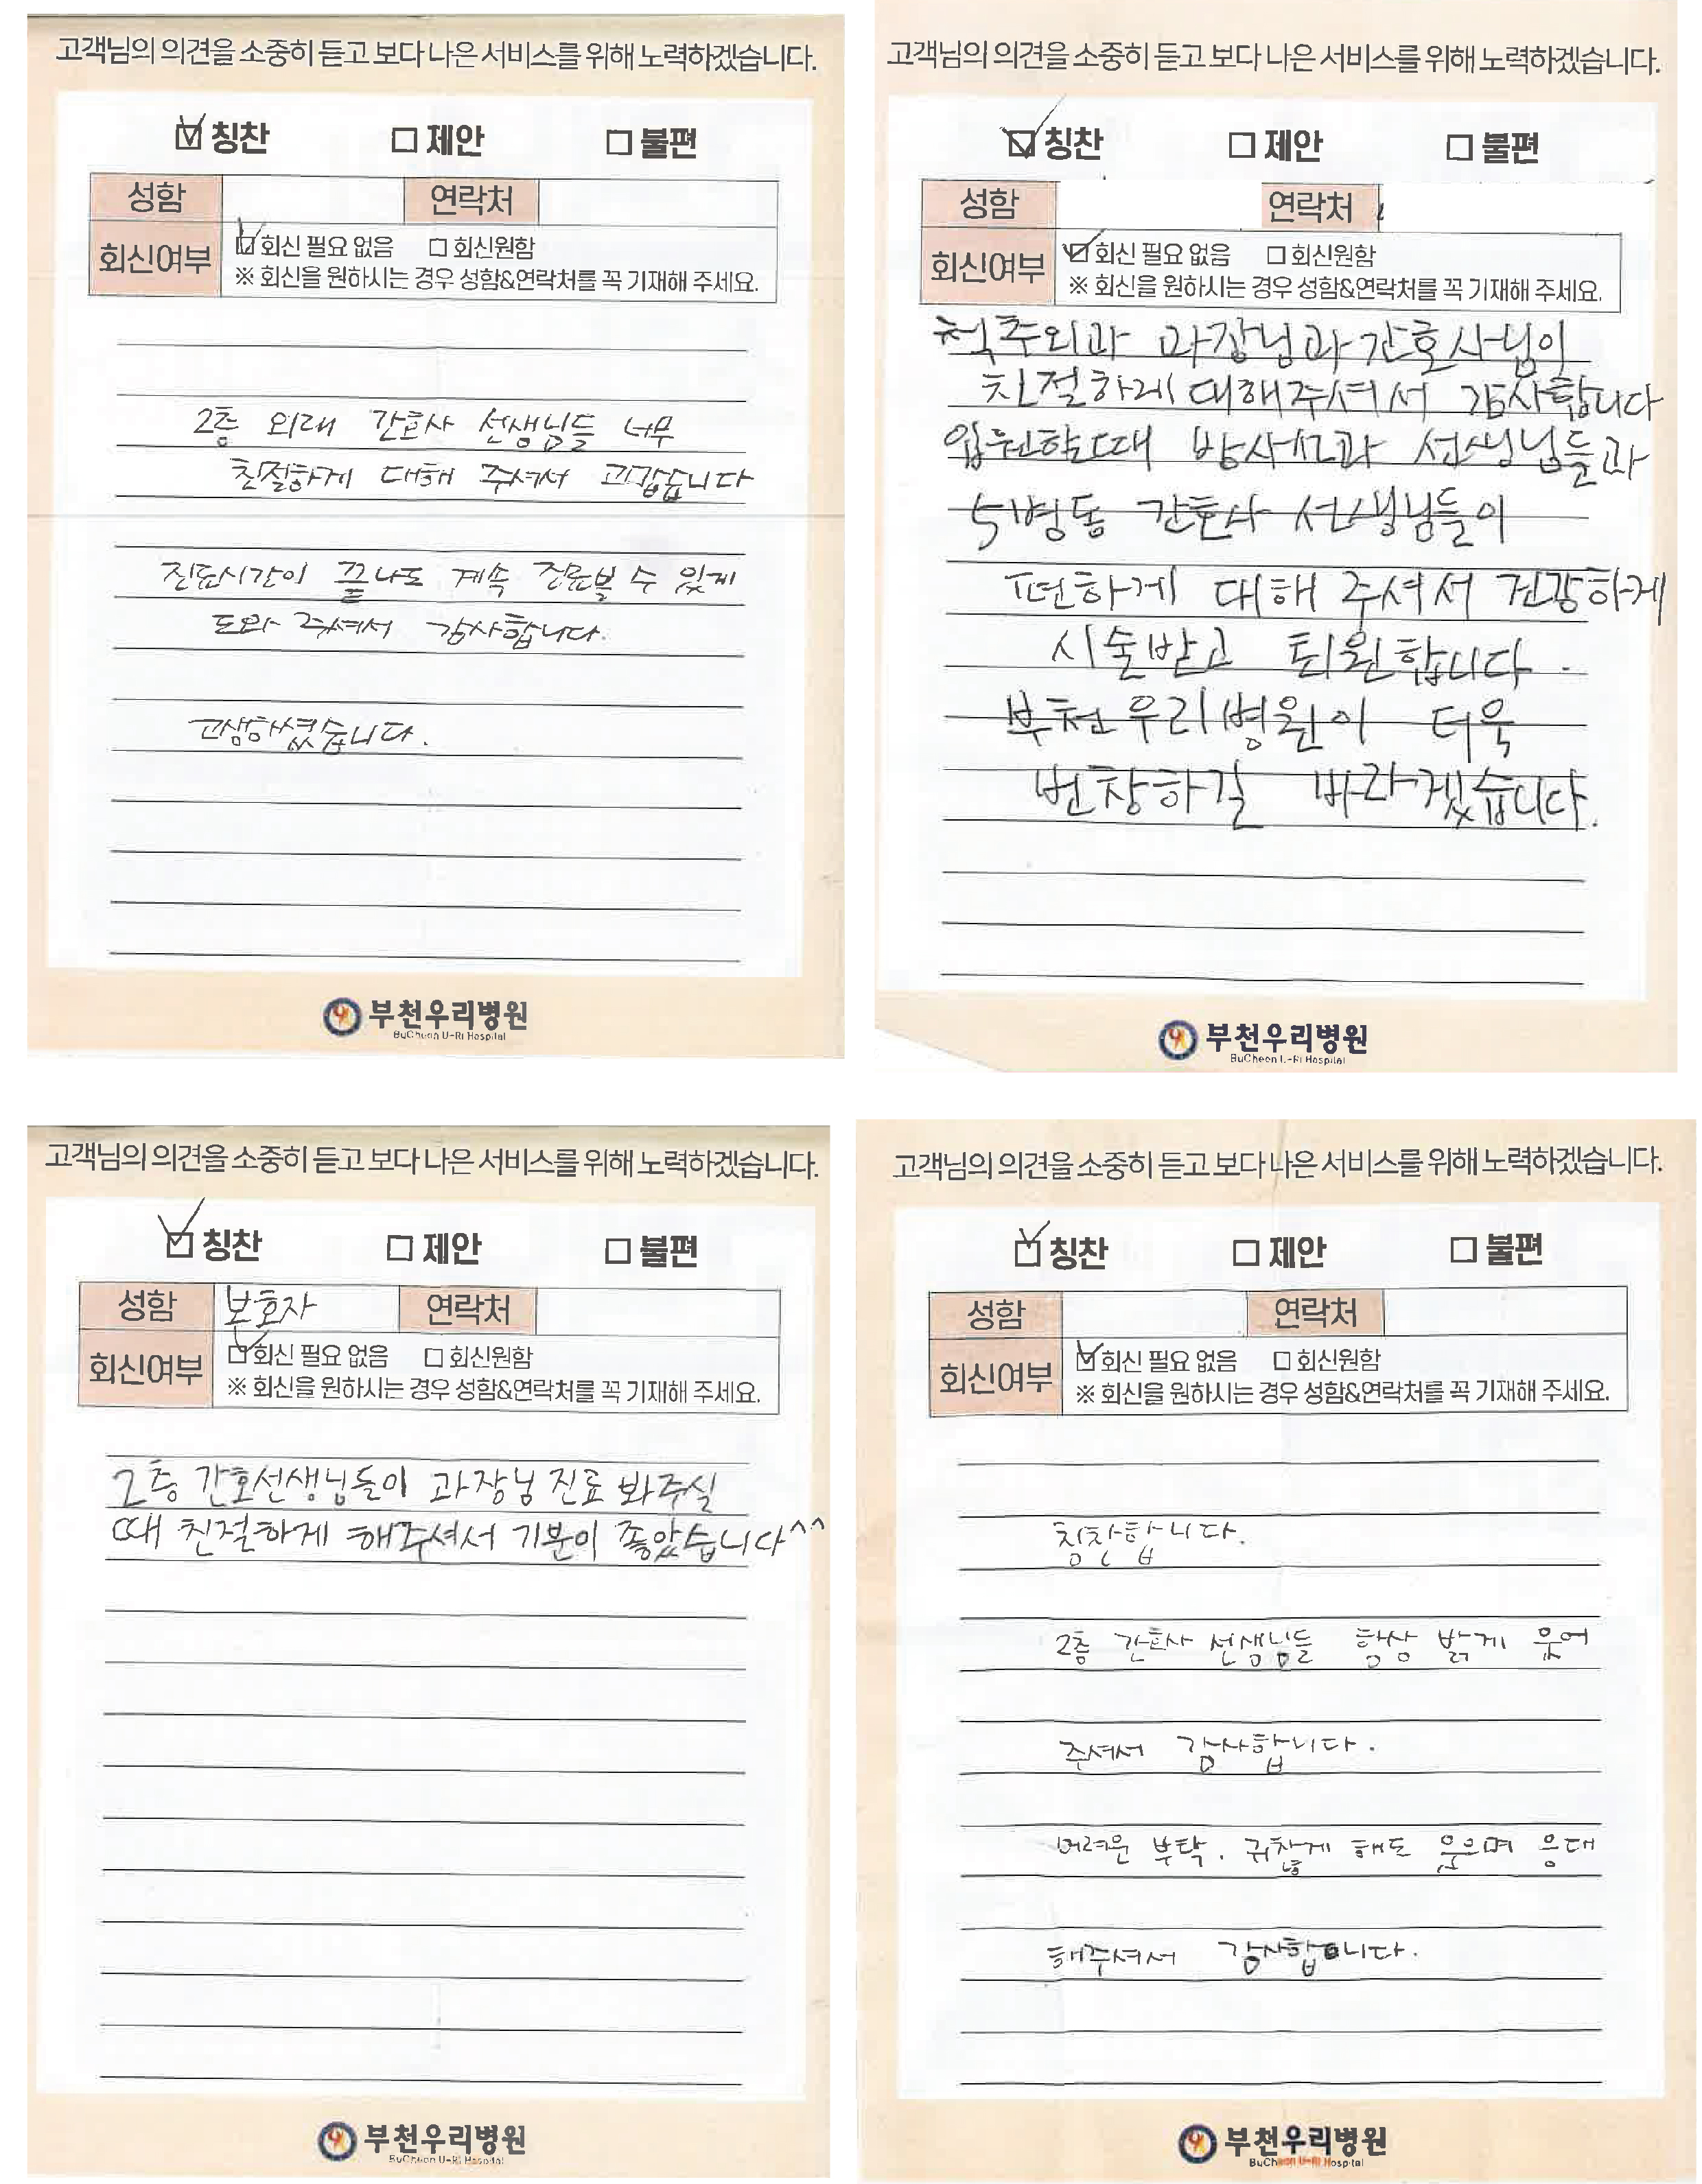 고객님의 의견을 소중히 듣고 보다 나은 서비스를 위해 노력하겠습니다.
☑ 칭찬 ☐ 제안 ☐ 불편
성함 연락처
회신여부 ☑ 회신 필요 없음 ☐ 회신원함
※ 회신을 원하시는 경우 성함&연락처를 꼭 기재해 주세요.
2층 외래 간호사 선생님들 너무
친절하게 대해 주셔서 고맙습니다
진료시간이 끝나도 계속 진료볼 수 있게
도와 주셔서 감사합니다.
고생하셨습니다.
부천우리병원
BuCheon U-Ri Hospital
고객님의 의견을 소중히 듣고 보다 나은 서비스를 위해 노력하겠습니다.
☑ 칭찬 ☐ 제안 ☐ 불편
성함 연락처
회신여부 ☑ 회신 필요 없음 ☐ 회신원함
※ 회신을 원하시는 경우 성함&연락처를 꼭 기재해 주세요.
척추외과 과장님과 간호사님이
친절하게 대해주셔서 감사합니다
입원할때 방사선과 선생님들과
5병동 간호사 선생님들이
편하게 대해 주셔서 건강하게
시술받고 퇴원합니다.
부천우리병원이 더욱
번창하길 바라겠습니다.
부천우리병원
BuCheon U-Ri Hospital
고객님의 의견을 소중히 듣고 보다 나은 서비스를 위해 노력하겠습니다.
☑ 칭찬 ☐ 제안 ☐ 불편
성함 보호자 연락처
회신여부 ☑ 회신 필요 없음 ☐ 회신원함
※ 회신을 원하시는 경우 성함&연락처를 꼭 기재해 주세요.
2층 간호선생님들이 과장님 진료 봐주실
때 친절하게 해주셔서 기분이 좋았습니다^^
부천우리병원
BuCheon U-Ri Hospital
고객님의 의견을 소중히 듣고 보다 나은 서비스를 위해 노력하겠습니다.
☑ 칭찬 ☐ 제안 ☐ 불편
성함 연락처
회신여부 ☑ 회신 필요 없음 ☐ 회신원함
※ 회신을 원하시는 경우 성함&연락처를 꼭 기재해 주세요.
칭찬합니다.
2층 간호사 선생님들 항상 밝게 웃어
주셔서 감사합니다.
어려운 부탁. 귀찮게 해도 웃으며 응대
해주셔서 감사합니다.
부천우리병원
BuCheon U-Ri Hospital